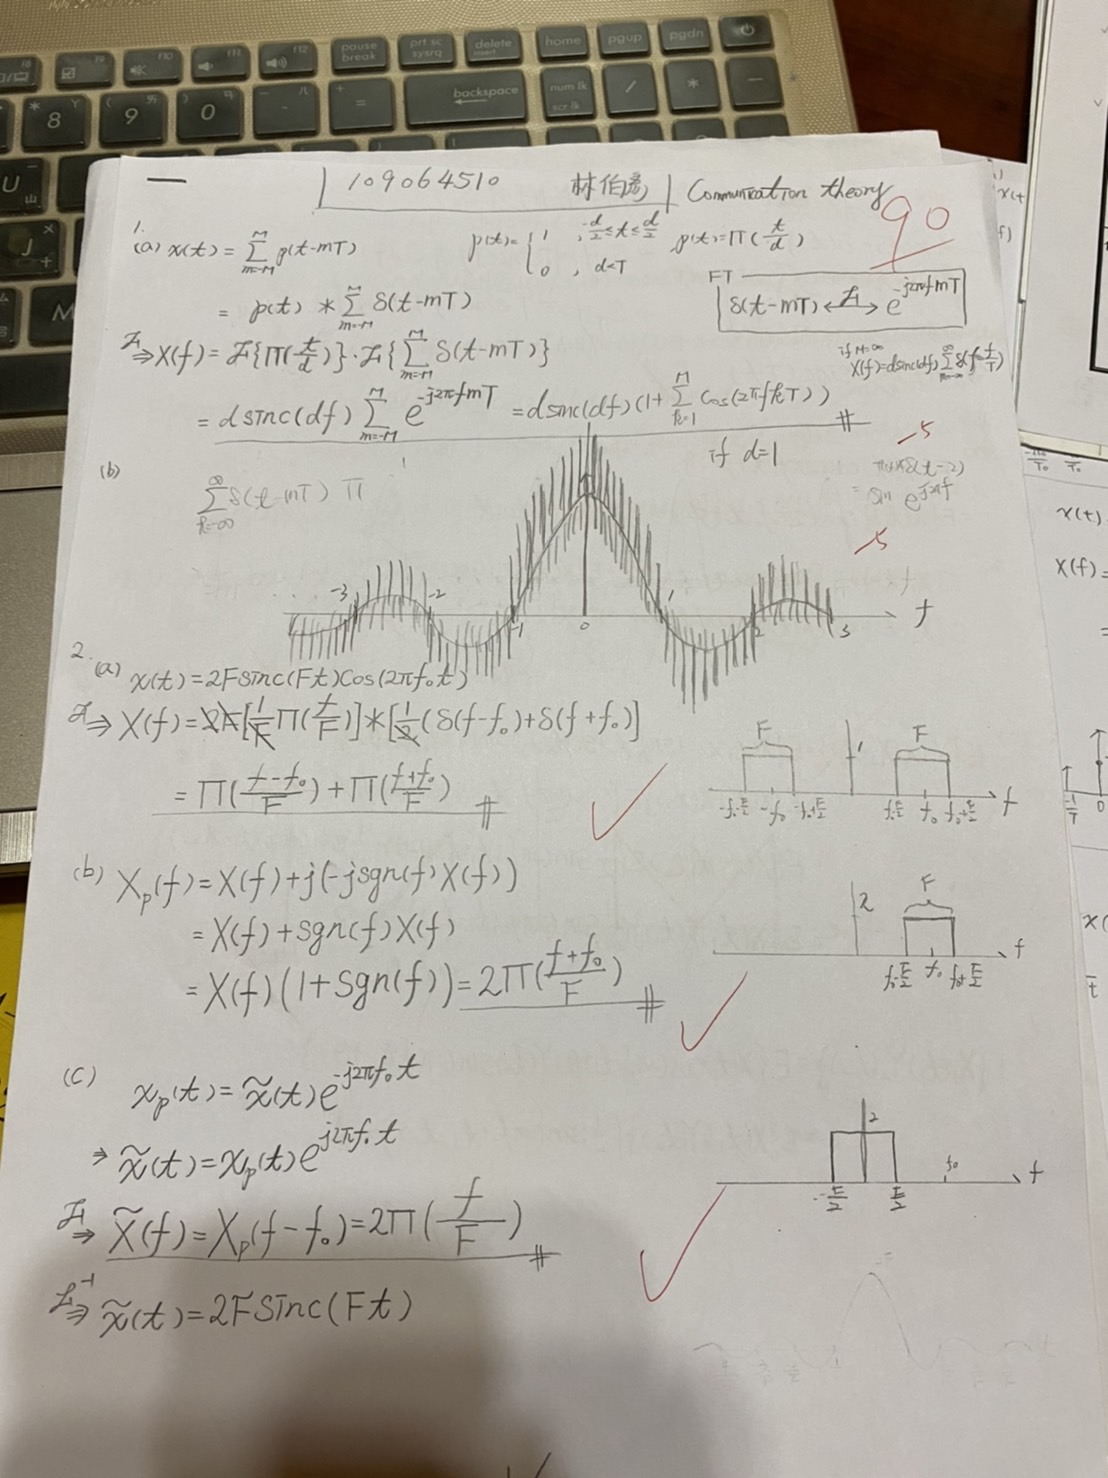 pause break
prt sc sysrq
delete
home
pgup
pgdn
F10
F11
F12
8
9
0
-
+ =
backspace
num lk
scr lk
/
*
-
U
J
M
一
109064510 林伯 Communication theory
90
1.
(a) x(t) = ∑_{m=-M}^{M} p(t-mT) p(t) = { 1 , -d/2 ≤ t ≤ d/2 p(t) = Π(t/d)
0 , d<T
= p(t) * ∑_{m=-M}^{M} δ(t-mT) FT δ(t-mT) ↔ e^{-j2πfmT}
⇒ X(f) = F{Π(t/d)}·F{∑_{m=-M}^{M} δ(t-mT)} if M=∞
= d sinc(df) ∑_{m=-M}^{M} e^{-j2πfmT} = d sinc(df)(1+∑_{k=1}^{M} Cos(2πfkT)) #
-5
(b) if d=1
∑_{k=-∞}^{∞} δ(t-mT) Π
-5
-3 -2 -1 0 1 2 3 f
2.
(a) x(t) = 2F sinc(Ft) Cos(2πf₀t)
F⇒ X(f) = 2F[1/F Π(f/F)] * [1/2 (δ(f-f₀)+δ(f+f₀)]
= Π((f-f₀)/F) + Π((f+f₀)/F) #
F 1 F
-f₀-F/2 -f₀ -f₀+F/2 f₀-F/2 f₀ f₀+F/2 f
(b) Xp(f) = X(f)+j(-jsgn(f)X(f))
= X(f)+sgn(f)X(f)
= X(f)(1+sgn(f)) = 2Π((f+f₀)/F) #
2 F
f₀-F/2 f₀ f₀+F/2 f
(c) xp(t) = x̃(t)e^{-j2πf₀t}
⇒ x̃(t) = xp(t)e^{j2πf₀t}
F⇒ X̃(f) = Xp(f-f₀) = 2Π(f/F) #
2
-F/2 F/2 f₀ f
F⁻¹⇒ x̃(t) = 2F sinc(Ft)
x(t)
X(f) =
=